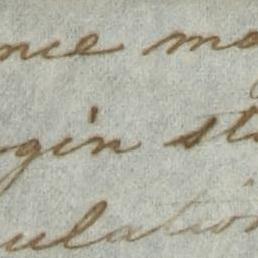 nce ma
gin sta
ulation